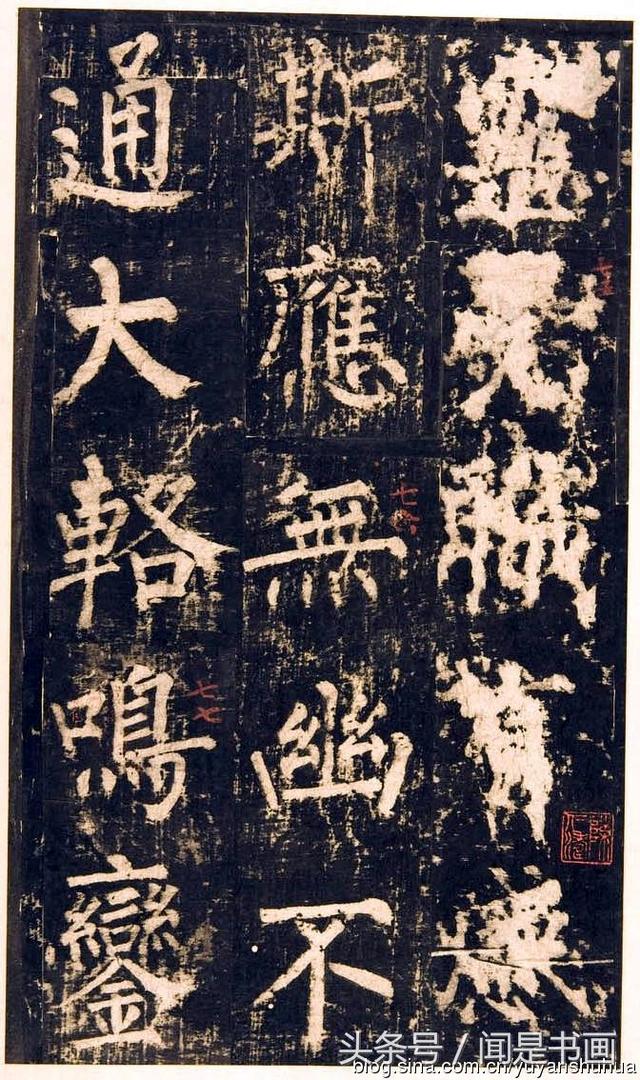 有感
斯應無幽不
通大輅鳴鑾
七六
七七
头条号 / 闻是书画
blog.sina.com.cn/yuyanshuhua